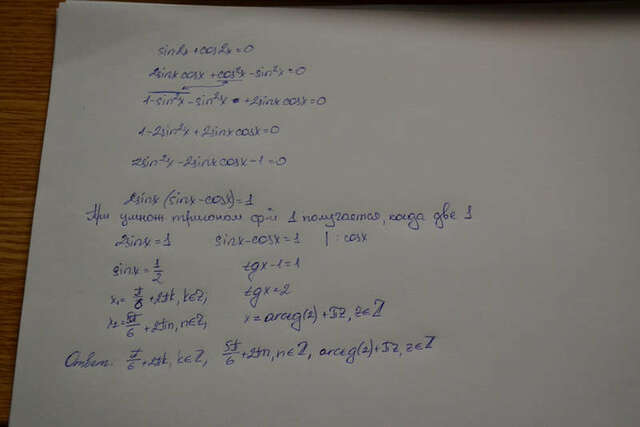 sin2x+cos2x=0
2sinxcosx+cos²x-sin²x=0
1-sin²x-sin²x +2sinxcosx=0
1-2sin²x+2sinxcosx=0
2sin²x-2sinxcosx-1=0
2sinx(sinx-cosx)=1
При умнож тригоном ф-й 1 получается, когда две 1
2sinx=1 sinx-cosx=1 |:cosx
sinx=1/2 tgx-1=1
x₁=π/6+2πk, k∈Z, tgx=2
x₂=5π/6+2πn, n∈Z, x=arctg(2)+πz, z∈Z
Ответ: π/6+2πk, k∈Z, 5π/6+2πn, n∈Z, arctg(2)+πz, z∈Z